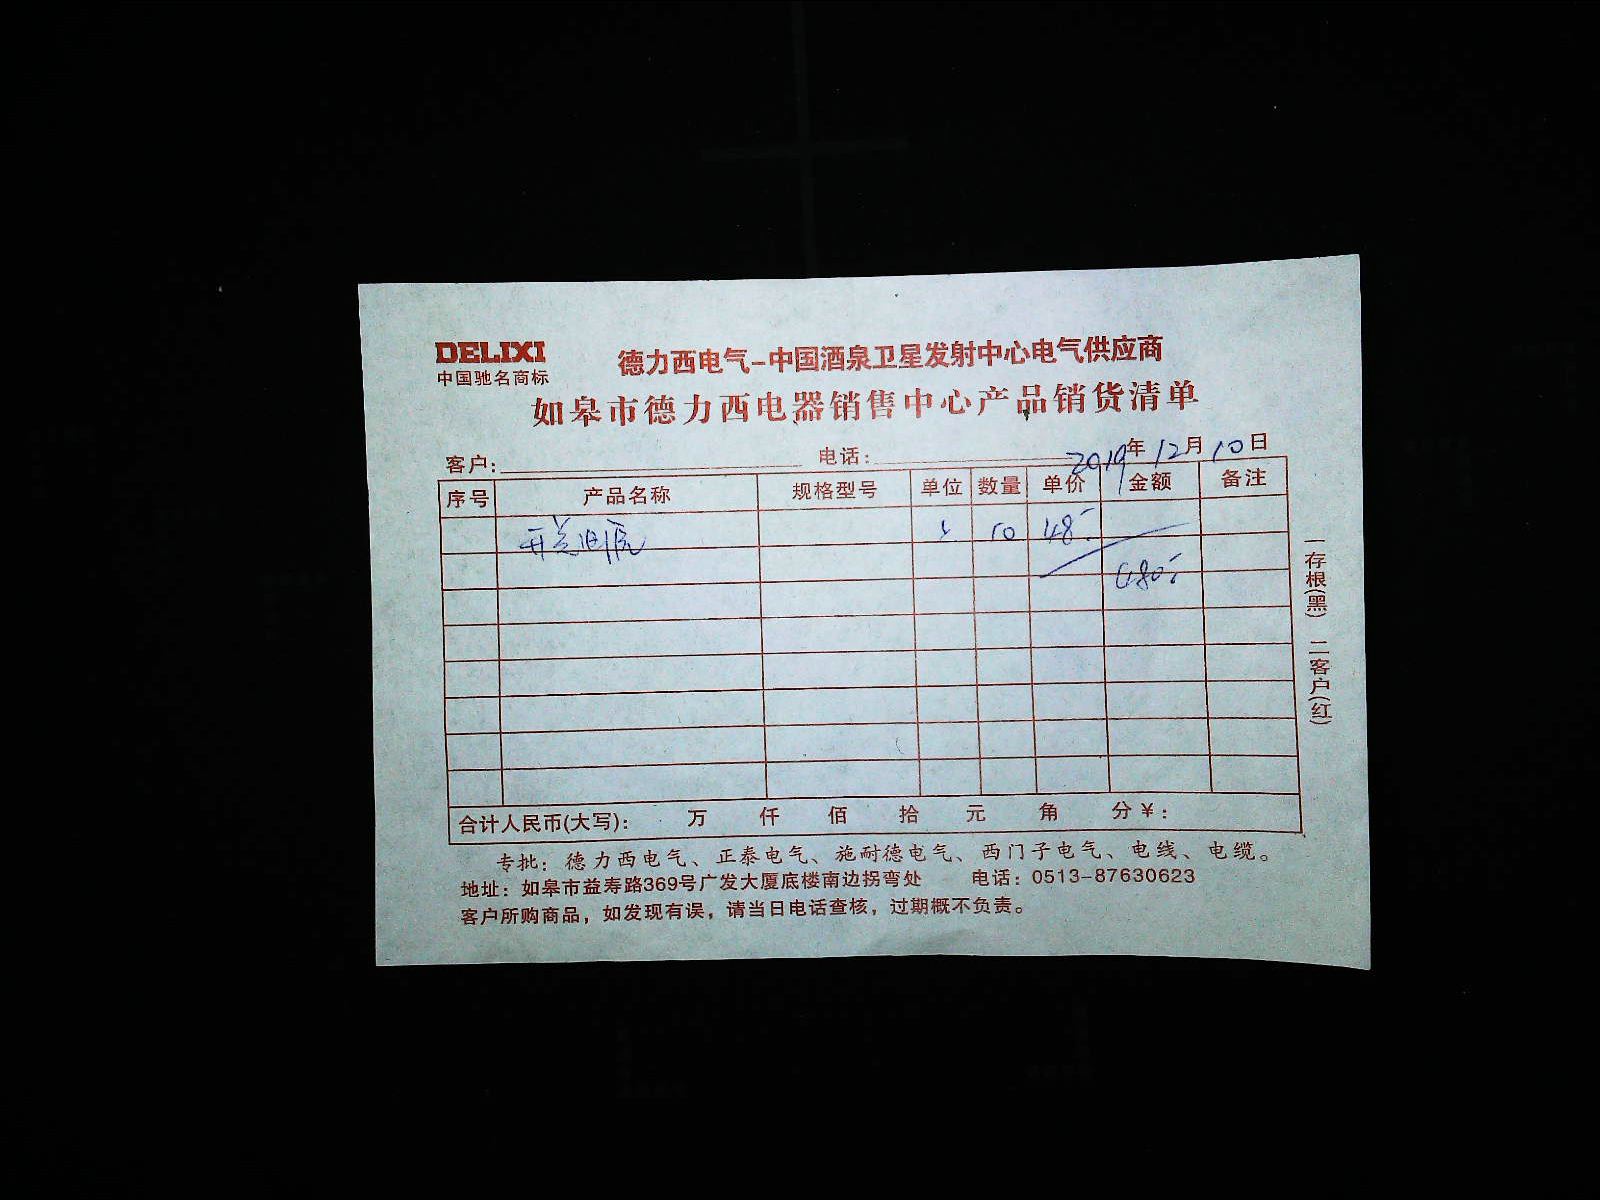 DELIXI
中国驰名商标
德力西电气-中国酒泉卫星发射中心电气供应商
如皋市德力西电器销售中心产品销货清单
客户: 电话: 2019年12月10日
序号 产品名称 规格型号 单位 数量 单价 金额 备注
开关电源 10 48
480
合计人民币(大写): 万 仟 佰 拾 元 角 分 ¥:
专批: 德力西电气、正泰电气、施耐德电气、西门子电气、电线、电缆。
地址: 如皋市益寿路369号广发大厦底楼南边拐弯处 电话: 0513-87630623
客户所购商品, 如发现有误, 请当日电话查核, 过期概不负责。
一存根(黑) 二客户(红)